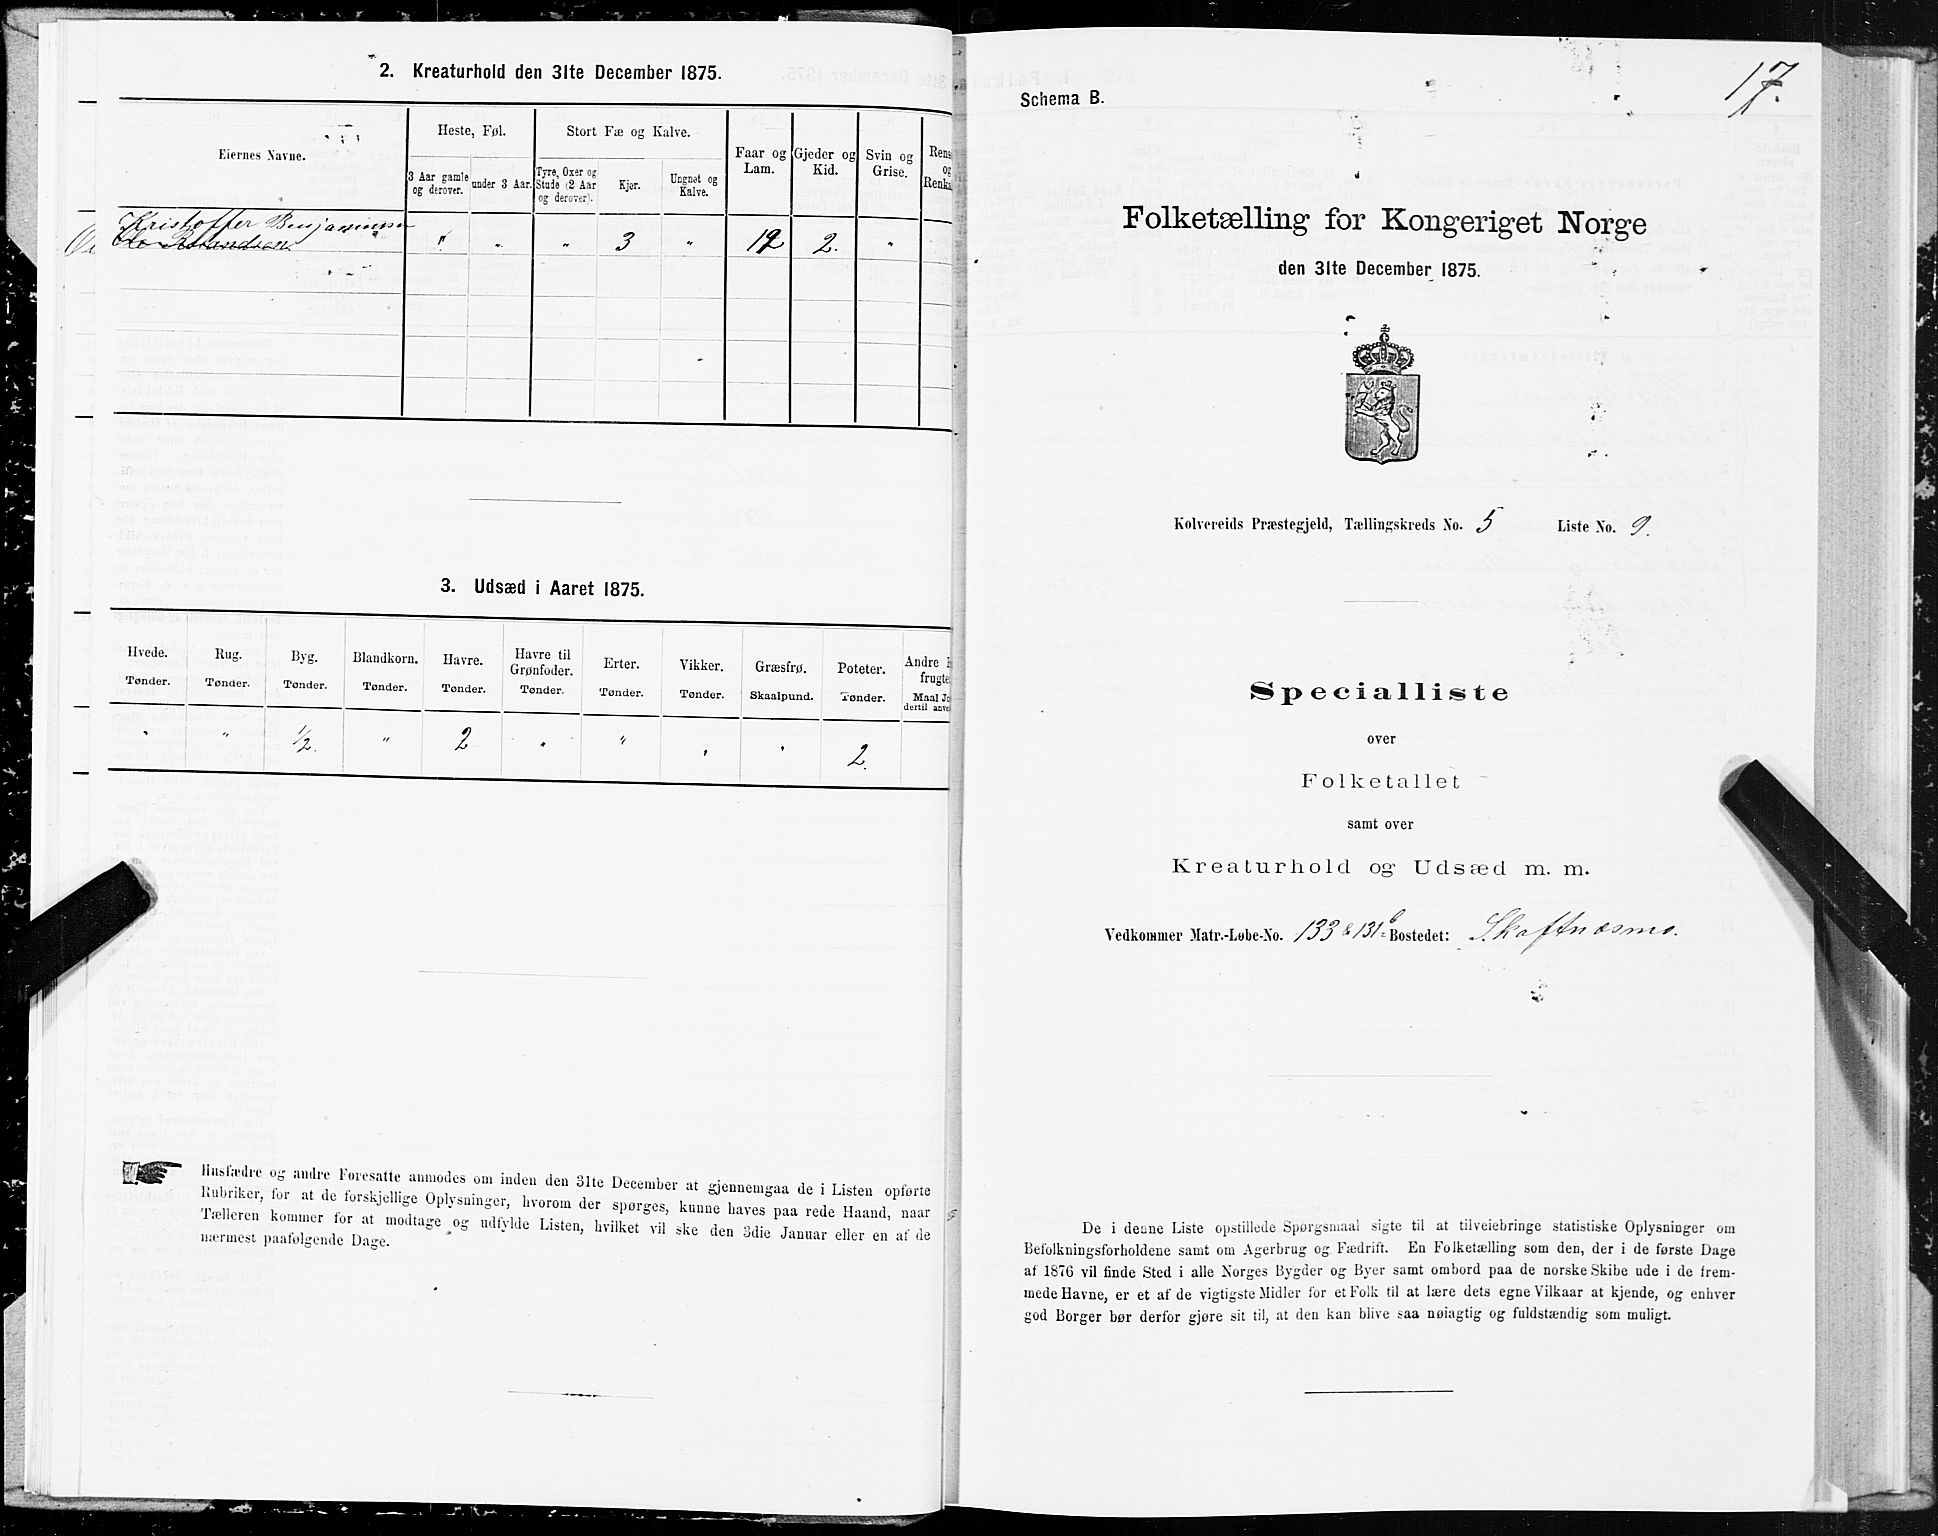 2. Kreaturhold den 31te December 1875.
Eiernes Navne.
Heste, Føl.
Stort Fæ og Kalve.
Faar og Lam.
Gjeder og Kid.
Svin og Grise.
3 Aar gamle og derover.
under 3 Aar.
Tyre, Oxer og Stude (2 Aar og derover).
Kjør.
Ungnøt og Kalve.
Kristoffer Benjaminsen
" " " 3 " 12 2. "
3. Udsæd i Aaret 1875.
Hvede. Rug. Byg. Blandkorn. Havre. Havre til Grønfoder. Erter. Vikker. Græsfrø. Poteter.
Tønder. Tønder. Tønder. Tønder. Tønder. Tønder. Tønder. Tønder. Skaalpund. Tønder.
" " 1/2. " 2 " " " " 2.
Husfædre og andre Foresatte anmodes om inden den 31te December at gjennemgaa de i Listen opførte
Rubriker, for at de forskjellige Oplysninger, hvorom der spørges, kunne haves paa rede Haand, naar
Tælleren kommer for at modtage og udfylde Listen, hvilket vil ske den 3die Januar eller en af de
nærmest paafølgende Dage.
17.
Schema B.
Folketælling for Kongeriget Norge
den 31te December 1875.
Kolvereids Præstegjeld, Tællingskreds No. 5 Liste No. 9.
Specialliste
over
Folketallet
samt over
Kreaturhold og Udsæd m. m.
Vedkommer Matr.-Løbe-No. 133 & 131b Bostedet: Skaftnæsmo.
De i denne Liste opstillede Spørgsmaal sigte til at tilveiebringe statistiske Oplysninger om
Befolkningsforholdene samt om Agerbrug og Fædrift. En Folketælling som den, der i de første Dage
af 1876 vil finde Sted i alle Norges Bygder og Byer samt ombord paa de norske Skibe ude i de frem-
mede Havne, er et af de vigtigste Midler for et Folk til at lære dets egne Vilkaar at kjende, og enhver
god Borger bør derfor gjøre sit til, at den kan blive saa nøiagtig og fuldstændig som muligt.